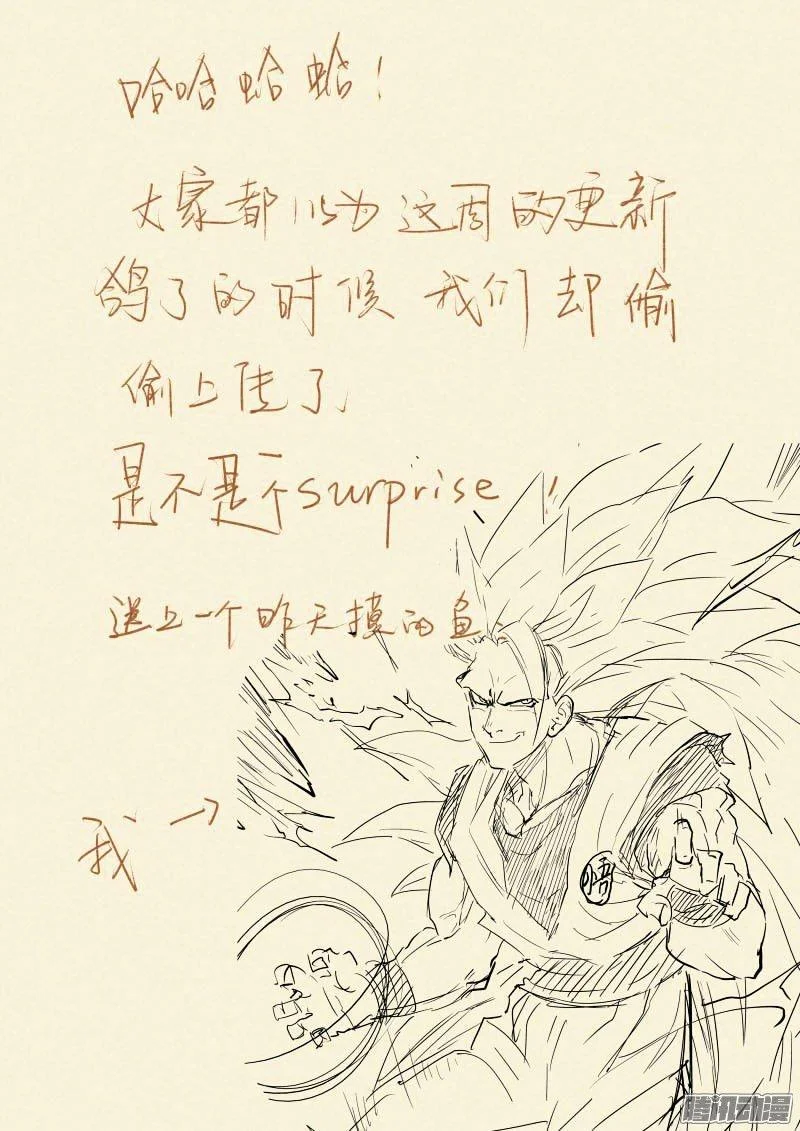 哈哈蛤蛤!
大家都以为这周的更新
鸽了的时候我们却偷
偷上传了
是不是个surprise!
送上一个昨天摸的鱼.
我→
悟
腾讯动漫